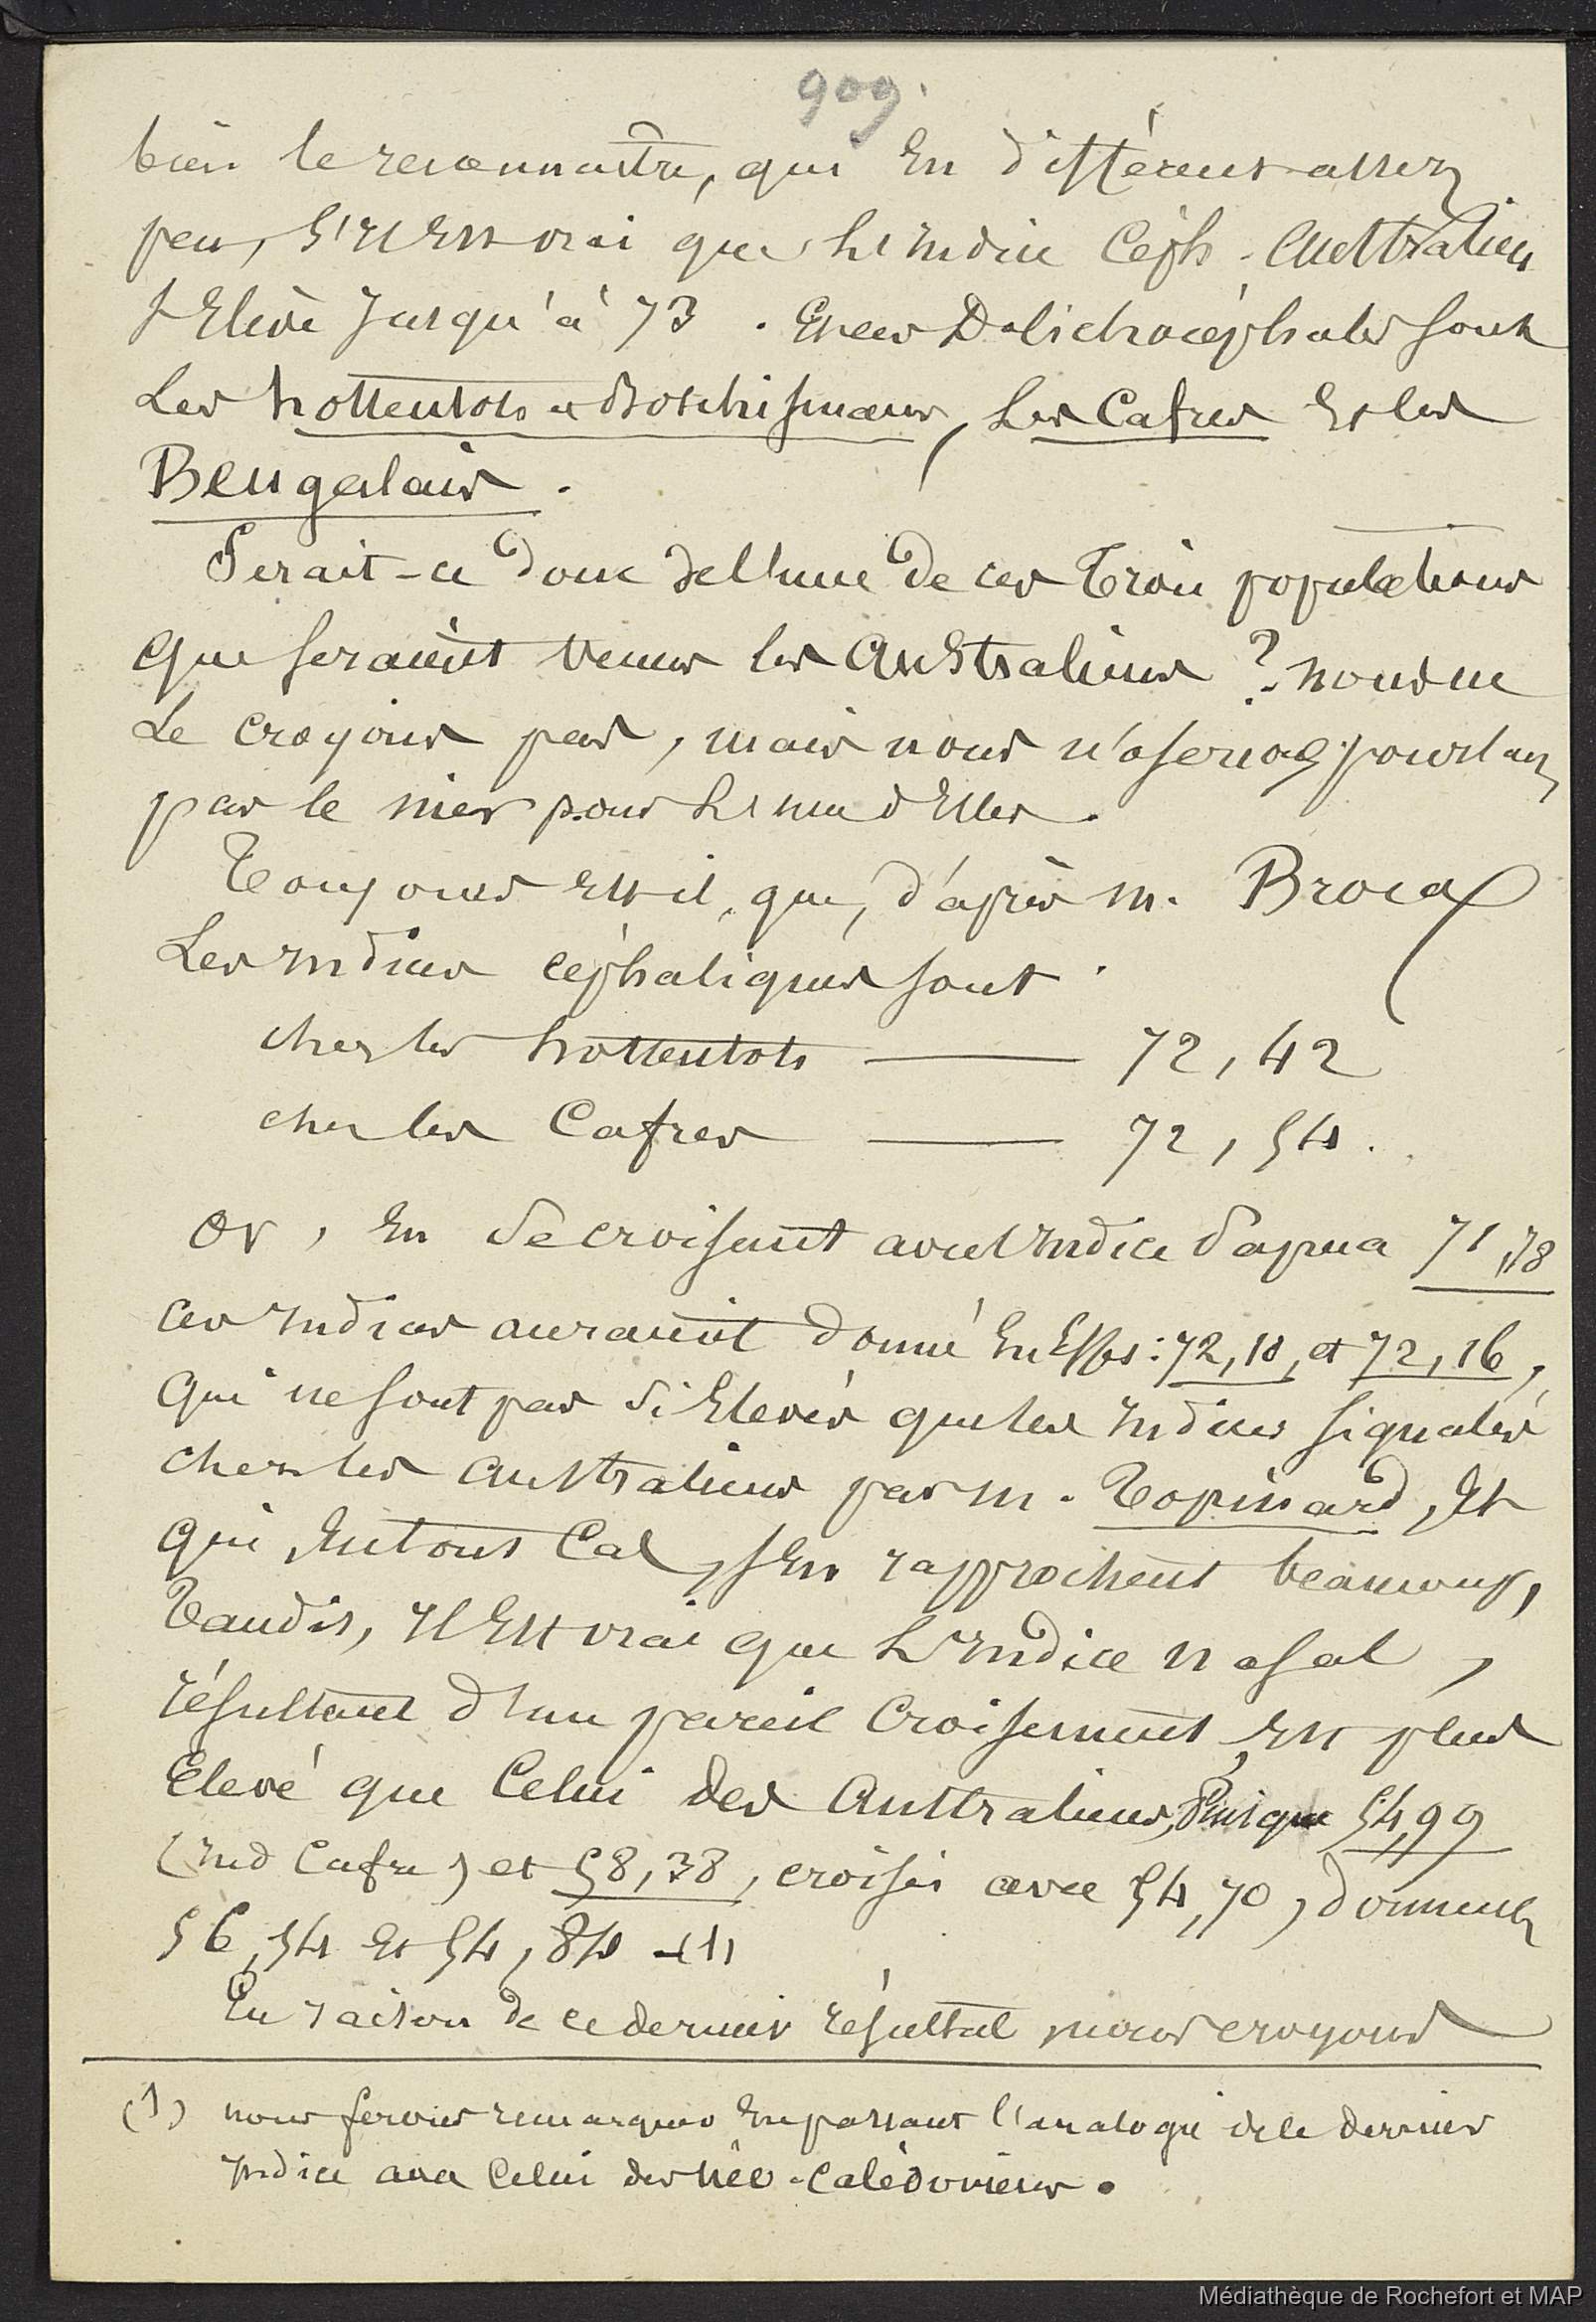 909.
bien le reconnaitre, qui en diffèrent assez
peu, s'il est vrai que l'indice Céph. Australien
s'elève jusqu'à 73. Dolichocéphales sont
Les hottentots et Boschismans, les Cafres et les
Bengalais.
Serait-ce donc de l'une de ces trois populations
que seraient venus les Australiens ? nous ne
le croyons pas, mais nous n'oserions pourtant
pas le nier pour l'une d'elles.
Toujours est-il, que, d'après M. Broca
Les indices céphaliques sont
chez les hottentots — 72,42
chez les Cafres — 72,54.
or, en se croisant avec l'indice Papua 71,78
ces indices auraient donné en effet : 72,10, et 72,16,
qui ne sont pas si elevés que les indices signalés
chez les australiens par M. Topinard, et
qui, en tous cas, s'en rapprochent beaucoup,
Tandis, il est vrai que l'indice nasal,
résultant d'un pareil croisement, est plus
elevé que Celui des Australiens, Puisque 54,99
(ind Cafre) et 58,38, croisés avec 54,70, donnent
56,54 et 54,84 (1)
En raison de ce dernier résultat nous croyons
(1) nous ferons remarquer en passant l'analogie de ce dernier
indice avec Celui des Néo-Calédoniens.
Médiathèque de Rochefort et MAP